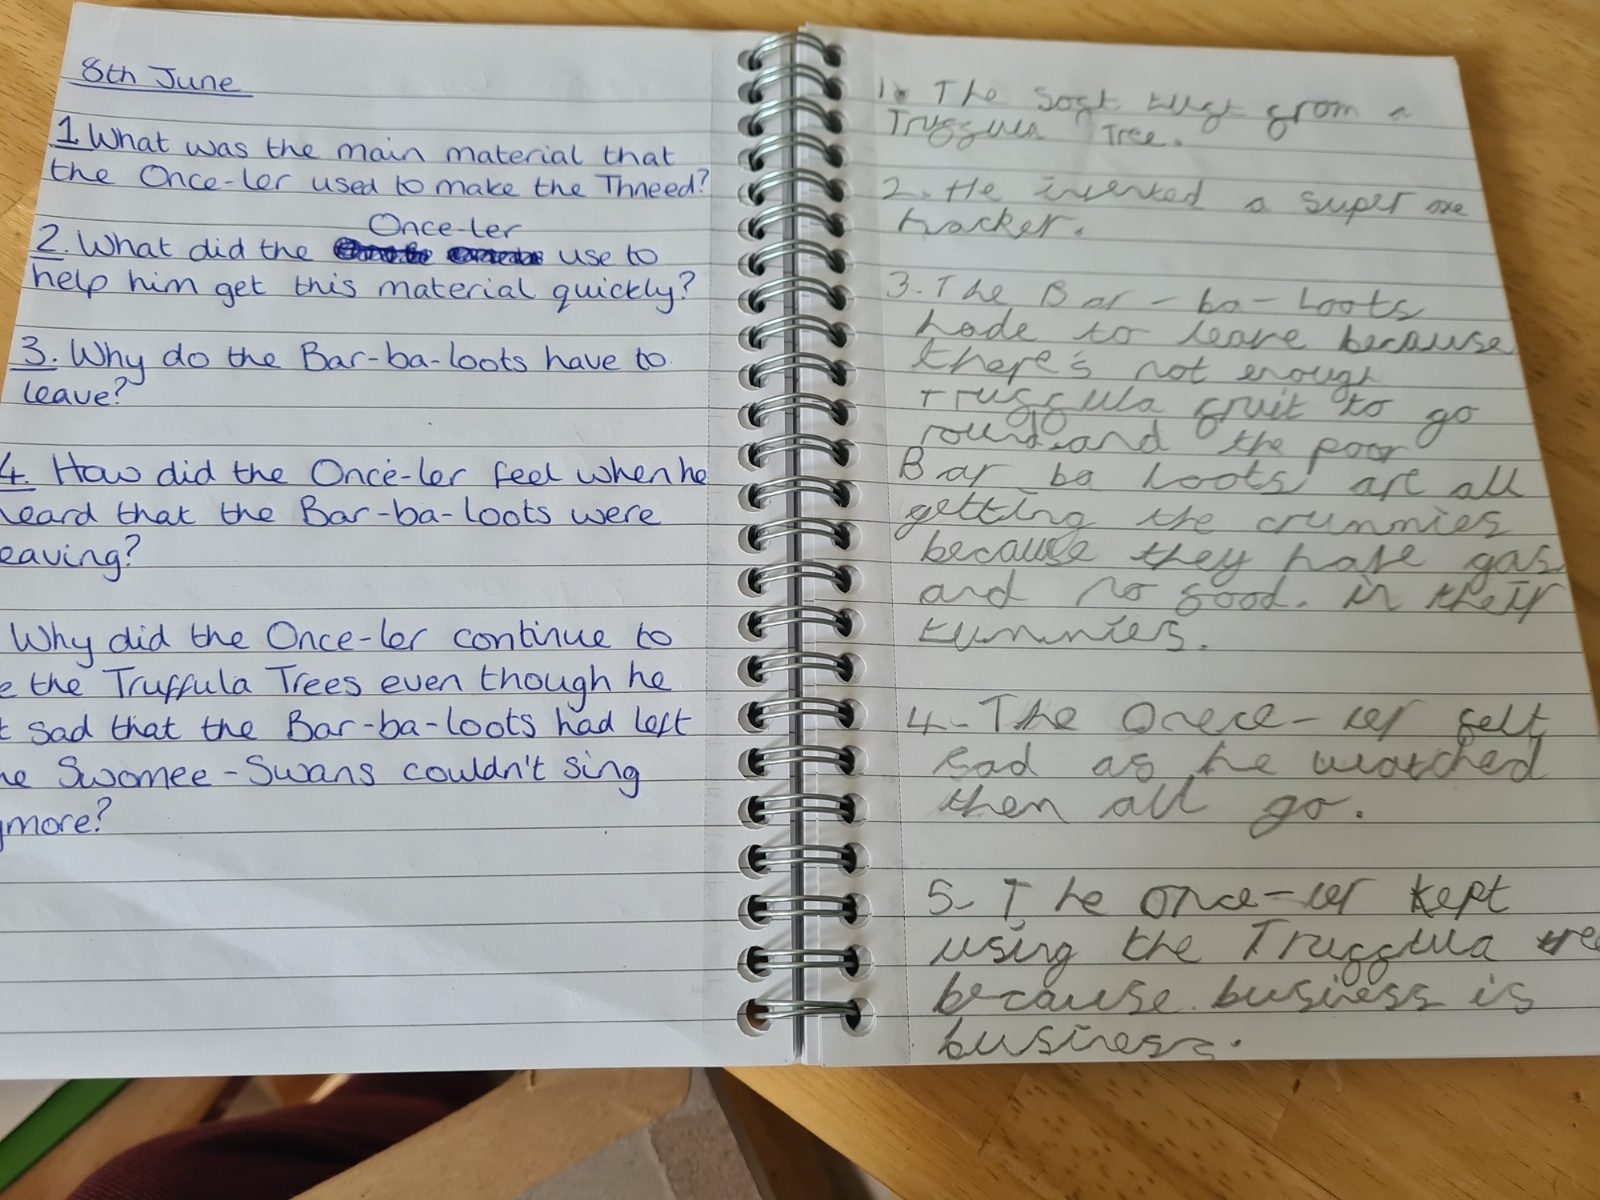 8th June
1. What was the main material that
the Once-ler used to make the Thneed?
Once-ler
2. What did the use to
help him get this material quickly?
3. Why do the Bar-ba-loots have to
leave?
4. How did the Once-ler feel when he
heard that the Bar-ba-loots were
eaving?
Why did the Once-ler continue to
e the Truffula Trees even though he
t sad that the Bar-ba-loots had left
he Swomee-Swans couldn't sing
ymore?
1. The soft tuft from a
Truffula Tree.
2. He invented a super axe
hacker.
3. The Bar-ba-loots
hade to leave because
there's not enough
truffula fruit to go
round and the poor
Bar ba loots are all
getting the crummies
because they have gas
and no food. in their
tummies.
4. The Onece-ler felt
sad as he watched
then all go.
5. The once-ler kept
using the Truffula tree
because business is
business.